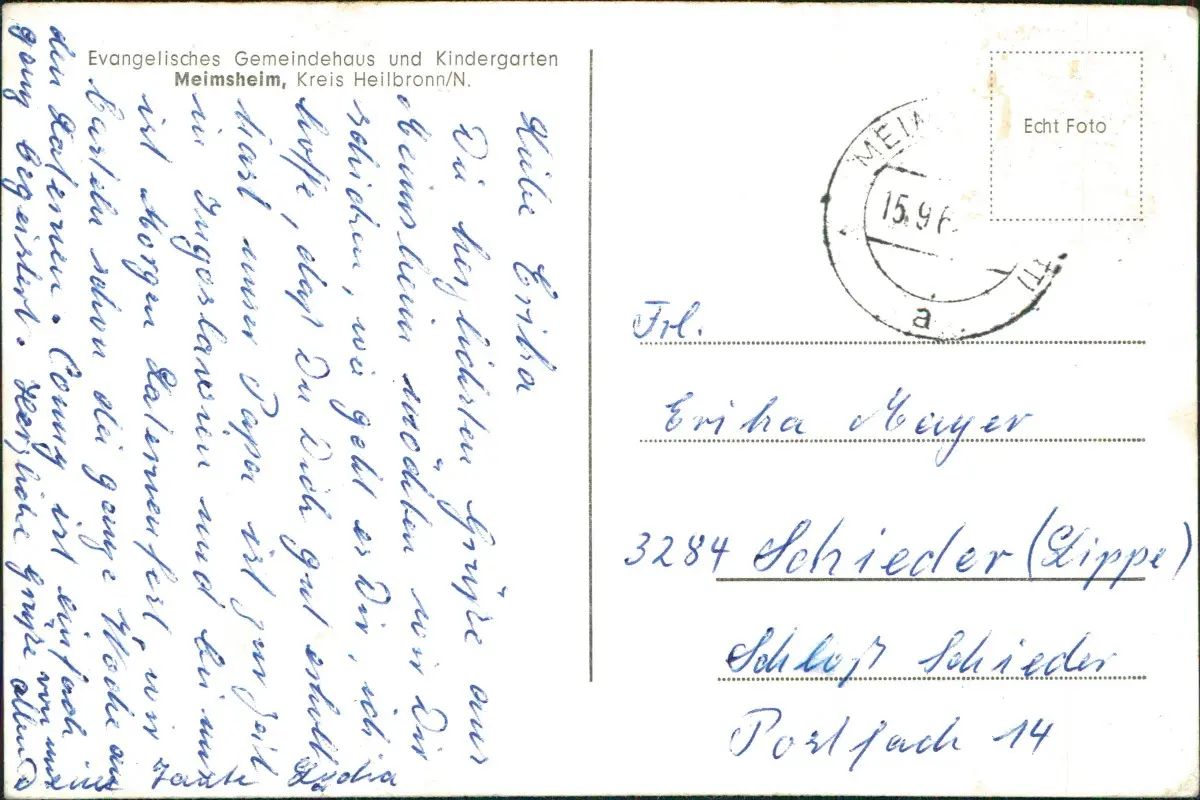 Evangelisches Gemeindehaus und Kindergarten
Meimsheim, Kreis Heilbronn/N.
Liebe Erika
Die herzlichsten Grüße aus
Meimsheim möchten wir Dir
schicken, wie geht es Dir, ich
hoffe, daß Du Dich gut erholt
hast unser Papa ist zur Zeit
in Jugoslavien und bei uns
ist Morgen Laternenfest, wir
basteln schon die ganze Woche an
den Laternen. Conny ist einfach
ganz begeistert. Herzliche Grüße von uns
allen
Tante Lydia
Echt Foto
MEIM
15.9.6
a
Frl.
Erika Mayer
3284 Schieder (Lippe)
Schloß Schieder
Postfach 14